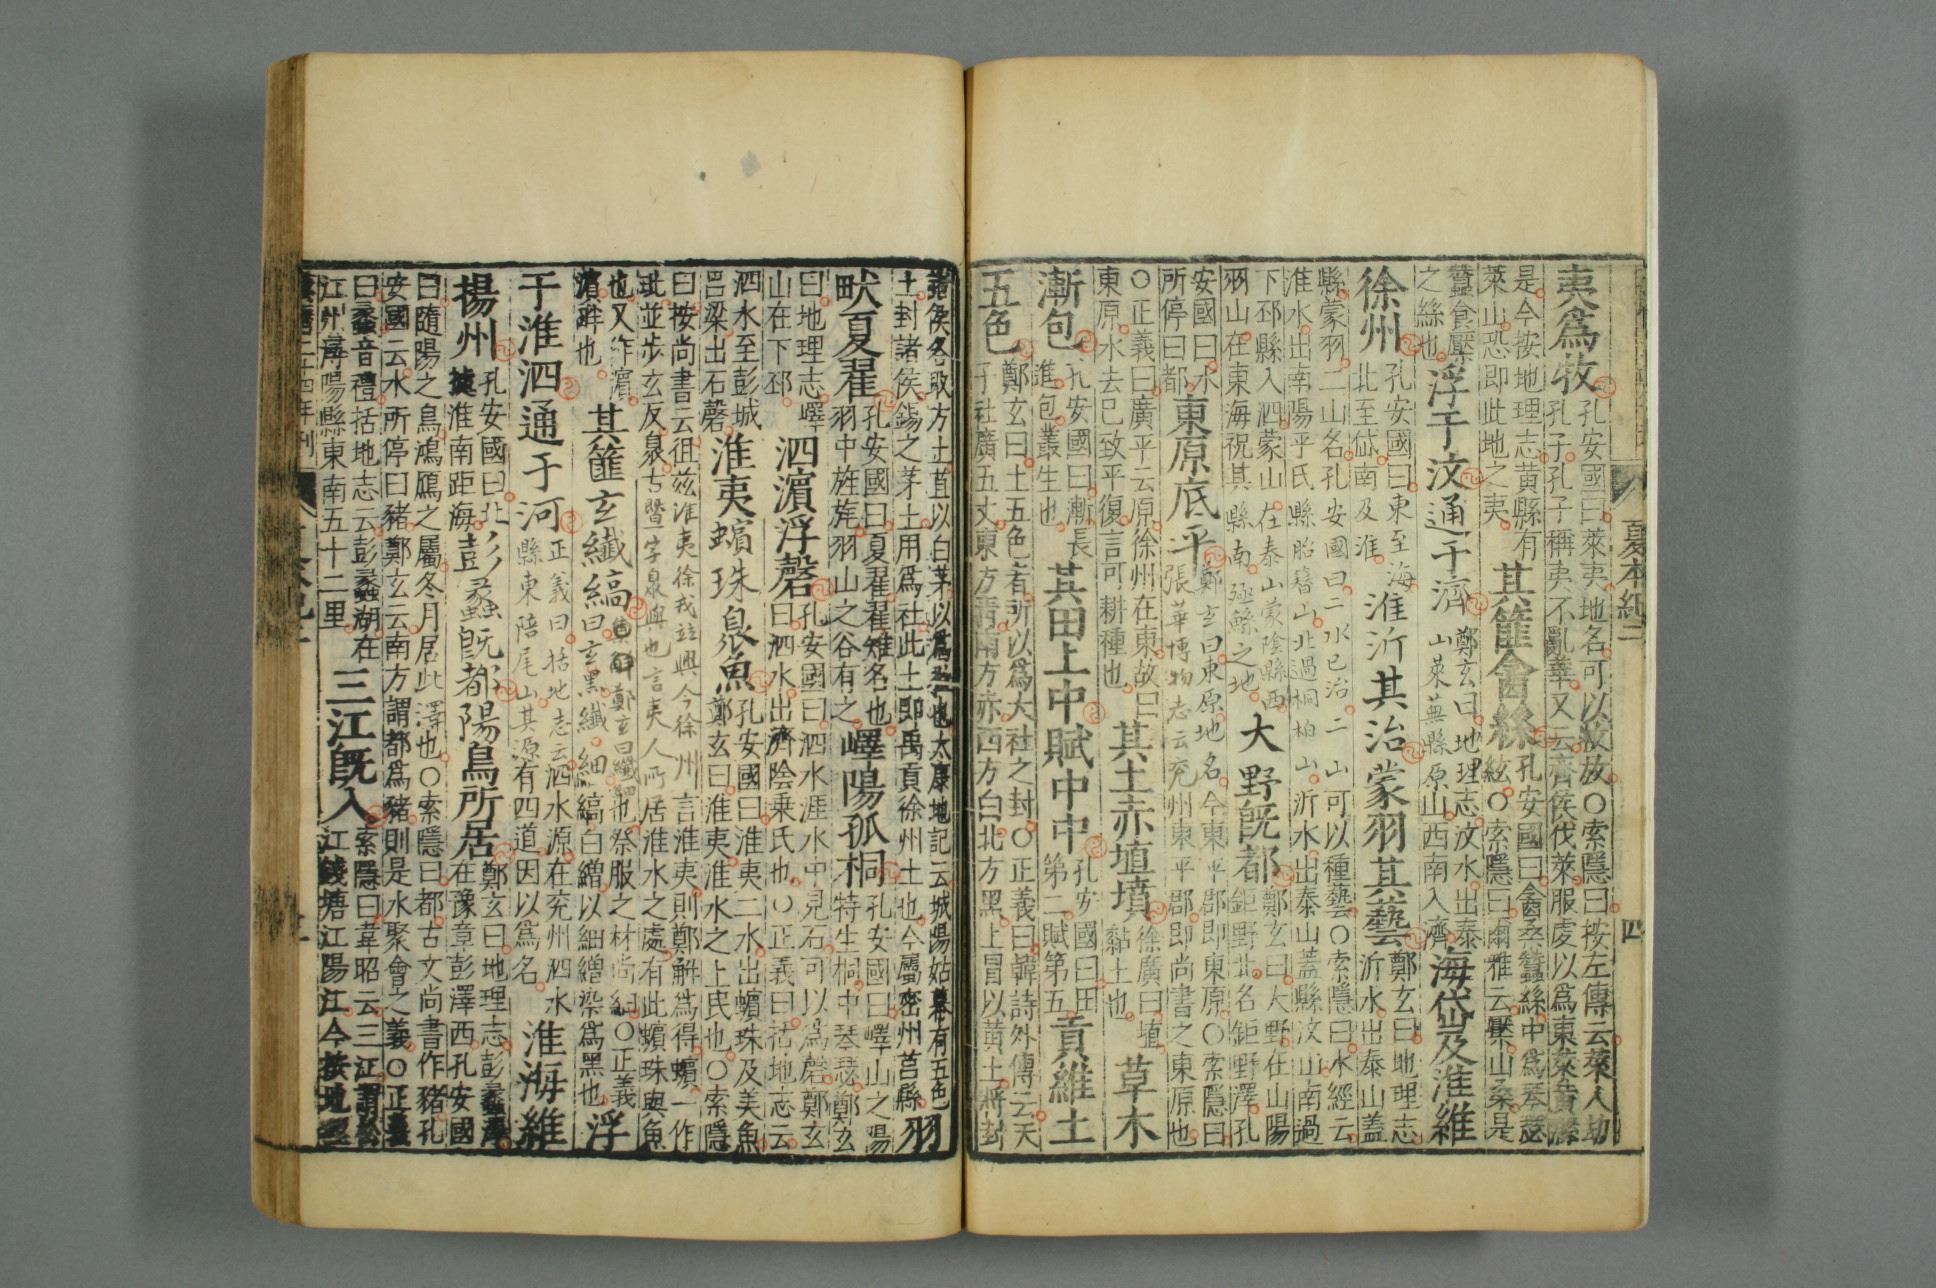 夷爲牧
孔安國曰萊夷地名可以牧放○索隱曰按左傳云萊人劫
孔子孔子稱夷不亂華又云齊侯伐萊服虔以爲東萊黄縣
是今按地理志黄縣有
萊山恐即此地之夷
其篚酓絲
孔安國曰酓桑蠶絲中爲琴瑟
絃○索隱曰爾雅云檿山桑是
蠶食檿
之絲也
浮于汶通于濟
鄭玄曰地理志汶水出泰
山萊蕪縣原山西南入濟
海岱及淮維
徐州
孔安國曰東至海
北至岱南及淮
淮沂其治蒙羽其藝
鄭玄曰地理志
沂水出泰山蓋
縣蒙羽二山名孔安國曰二水已治二山可以種藝○索隱曰水經云
淮水出南陽平氏縣胎簪山北過桐柏山沂水出泰山蓋縣汶山南過
下邳縣入泗蒙山在泰山蒙陰縣西
羽山在東海祝其縣南殛鯀之地
大野旣都
鄭玄曰大野在山陽
鉅野北名鉅野澤孔
安國曰水
所停曰都
東原底平
鄭玄曰東原地名今東平郡即東原○索隱曰
張華博物志云兖州東平郡即尚書之東原也
○正義曰廣平云原徐州在東故曰
東原水去已致平復言可耕種也
其土赤埴墳
徐廣曰埴
黏土也
草木
漸包
孔安國曰漸長
進包叢生也
其田上中賦中中
孔安國曰田
第二賦第五
貢維土
五色
鄭玄曰土五色者所以爲大社之封○正義曰韓詩外傳云天
子社廣五丈東方青南方赤西方白北方黑上冒以黄土將封
夏本紀二
四
諸侯各取方土苴以白茅以爲社也太康地記云城陽姑幕有五色
土封諸侯錫之茅土用爲社此土即禹貢徐州土也今屬密州莒縣
羽
畎夏翟
孔安國曰夏翟翟雉名也
羽中旌旄羽山之谷有之
嶧陽孤桐
孔安國曰嶧山之陽
特生桐中琴瑟鄭玄
曰地理志嶧
山在下邳
泗濵浮磬
孔安國曰泗水涯水中見石可以爲磬鄭玄
曰泗水出濟陰乗氏也○正義曰括地志云
泗水至彭城
吕梁出石磬
淮夷蠙珠臮魚
孔安國曰淮夷二水出蠙珠及美魚
鄭玄曰淮夷淮水之上民也○索隱
曰按尚書云徂兹淮夷徐戎並興今徐州言淮夷則鄭解爲得蠙一作
玭並步玄反臮古曁字臮與也言夷人所居淮水之處有此蠙珠與魚
也又作濵
濵畔也
其篚玄纖縞
鄭玄曰纖細也祭服之材尚細○正義
曰玄黑纖細縞白繒以細繒染爲黑也
浮
于淮泗通于河
正義曰括地志云泗水源在兖州泗水
縣東陪尾山其源有四道因以爲名
淮海維
揚州
孔安國曰北
據淮南距海
彭蠡旣都陽鳥所居
鄭玄曰地理志彭蠡澤
在豫章彭澤西孔安國
曰隨陽之鳥鴻鴈之屬冬月居此澤也○索隱曰都古文尚書作豬孔
安國云水所停曰豬鄭玄云南方謂都爲豬則是水聚會之義○正義
曰蠡音禮括地志云彭蠡湖在
江州潯陽縣東南五十二里
三江旣入
索隱曰韋昭云三江謂松
江錢塘江陽江今按地理